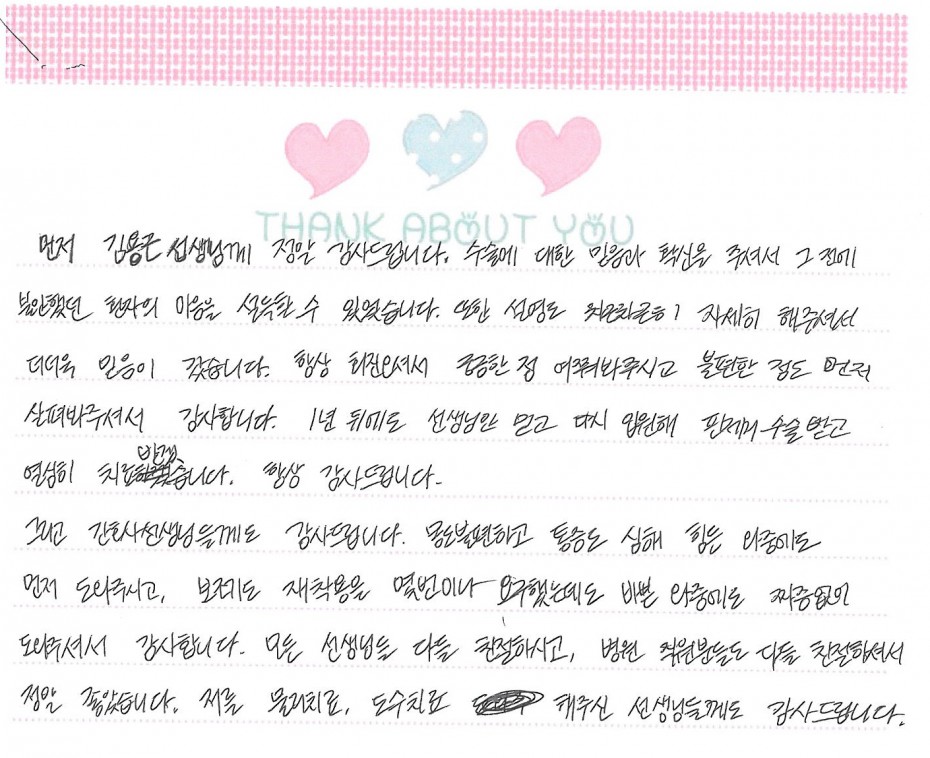 THANK ABOUT YOU
먼저 김용근 선생님께 정말 감사드립니다. 수술에 대한 믿음과 확신을 주셔서 그 전에
불안했던 환자의 마음을 설득할 수 있었습니다. 또한 설명도 자세히 해주셔서
더더욱 믿음이 갔습니다. 항상 회진오셔서 궁금한 점 여쭤봐주시고 불편한 점도 먼저
살펴봐주셔서 감사합니다. 1년 뒤에도 선생님만 믿고 다시 입원해 핀제거 수술 받고
열심히 치료받겠습니다. 항상 감사드립니다.
그리고 간호사선생님들께도 감사드립니다. 몸도불편하고 통증도 심해 힘든 와중에도
먼저 도와주시고, 보조기도 재착용을 몇번이나 요구했는데도 바쁜 와중에도 짜증없이
도와주셔서 감사합니다. 모든 선생님들 다들 친절하시고, 병원 직원분들도 다들 친절하셔서
정말 좋았습니다. 저를 물리치료, 도수치료 해주신 선생님들께도 감사드립니다.